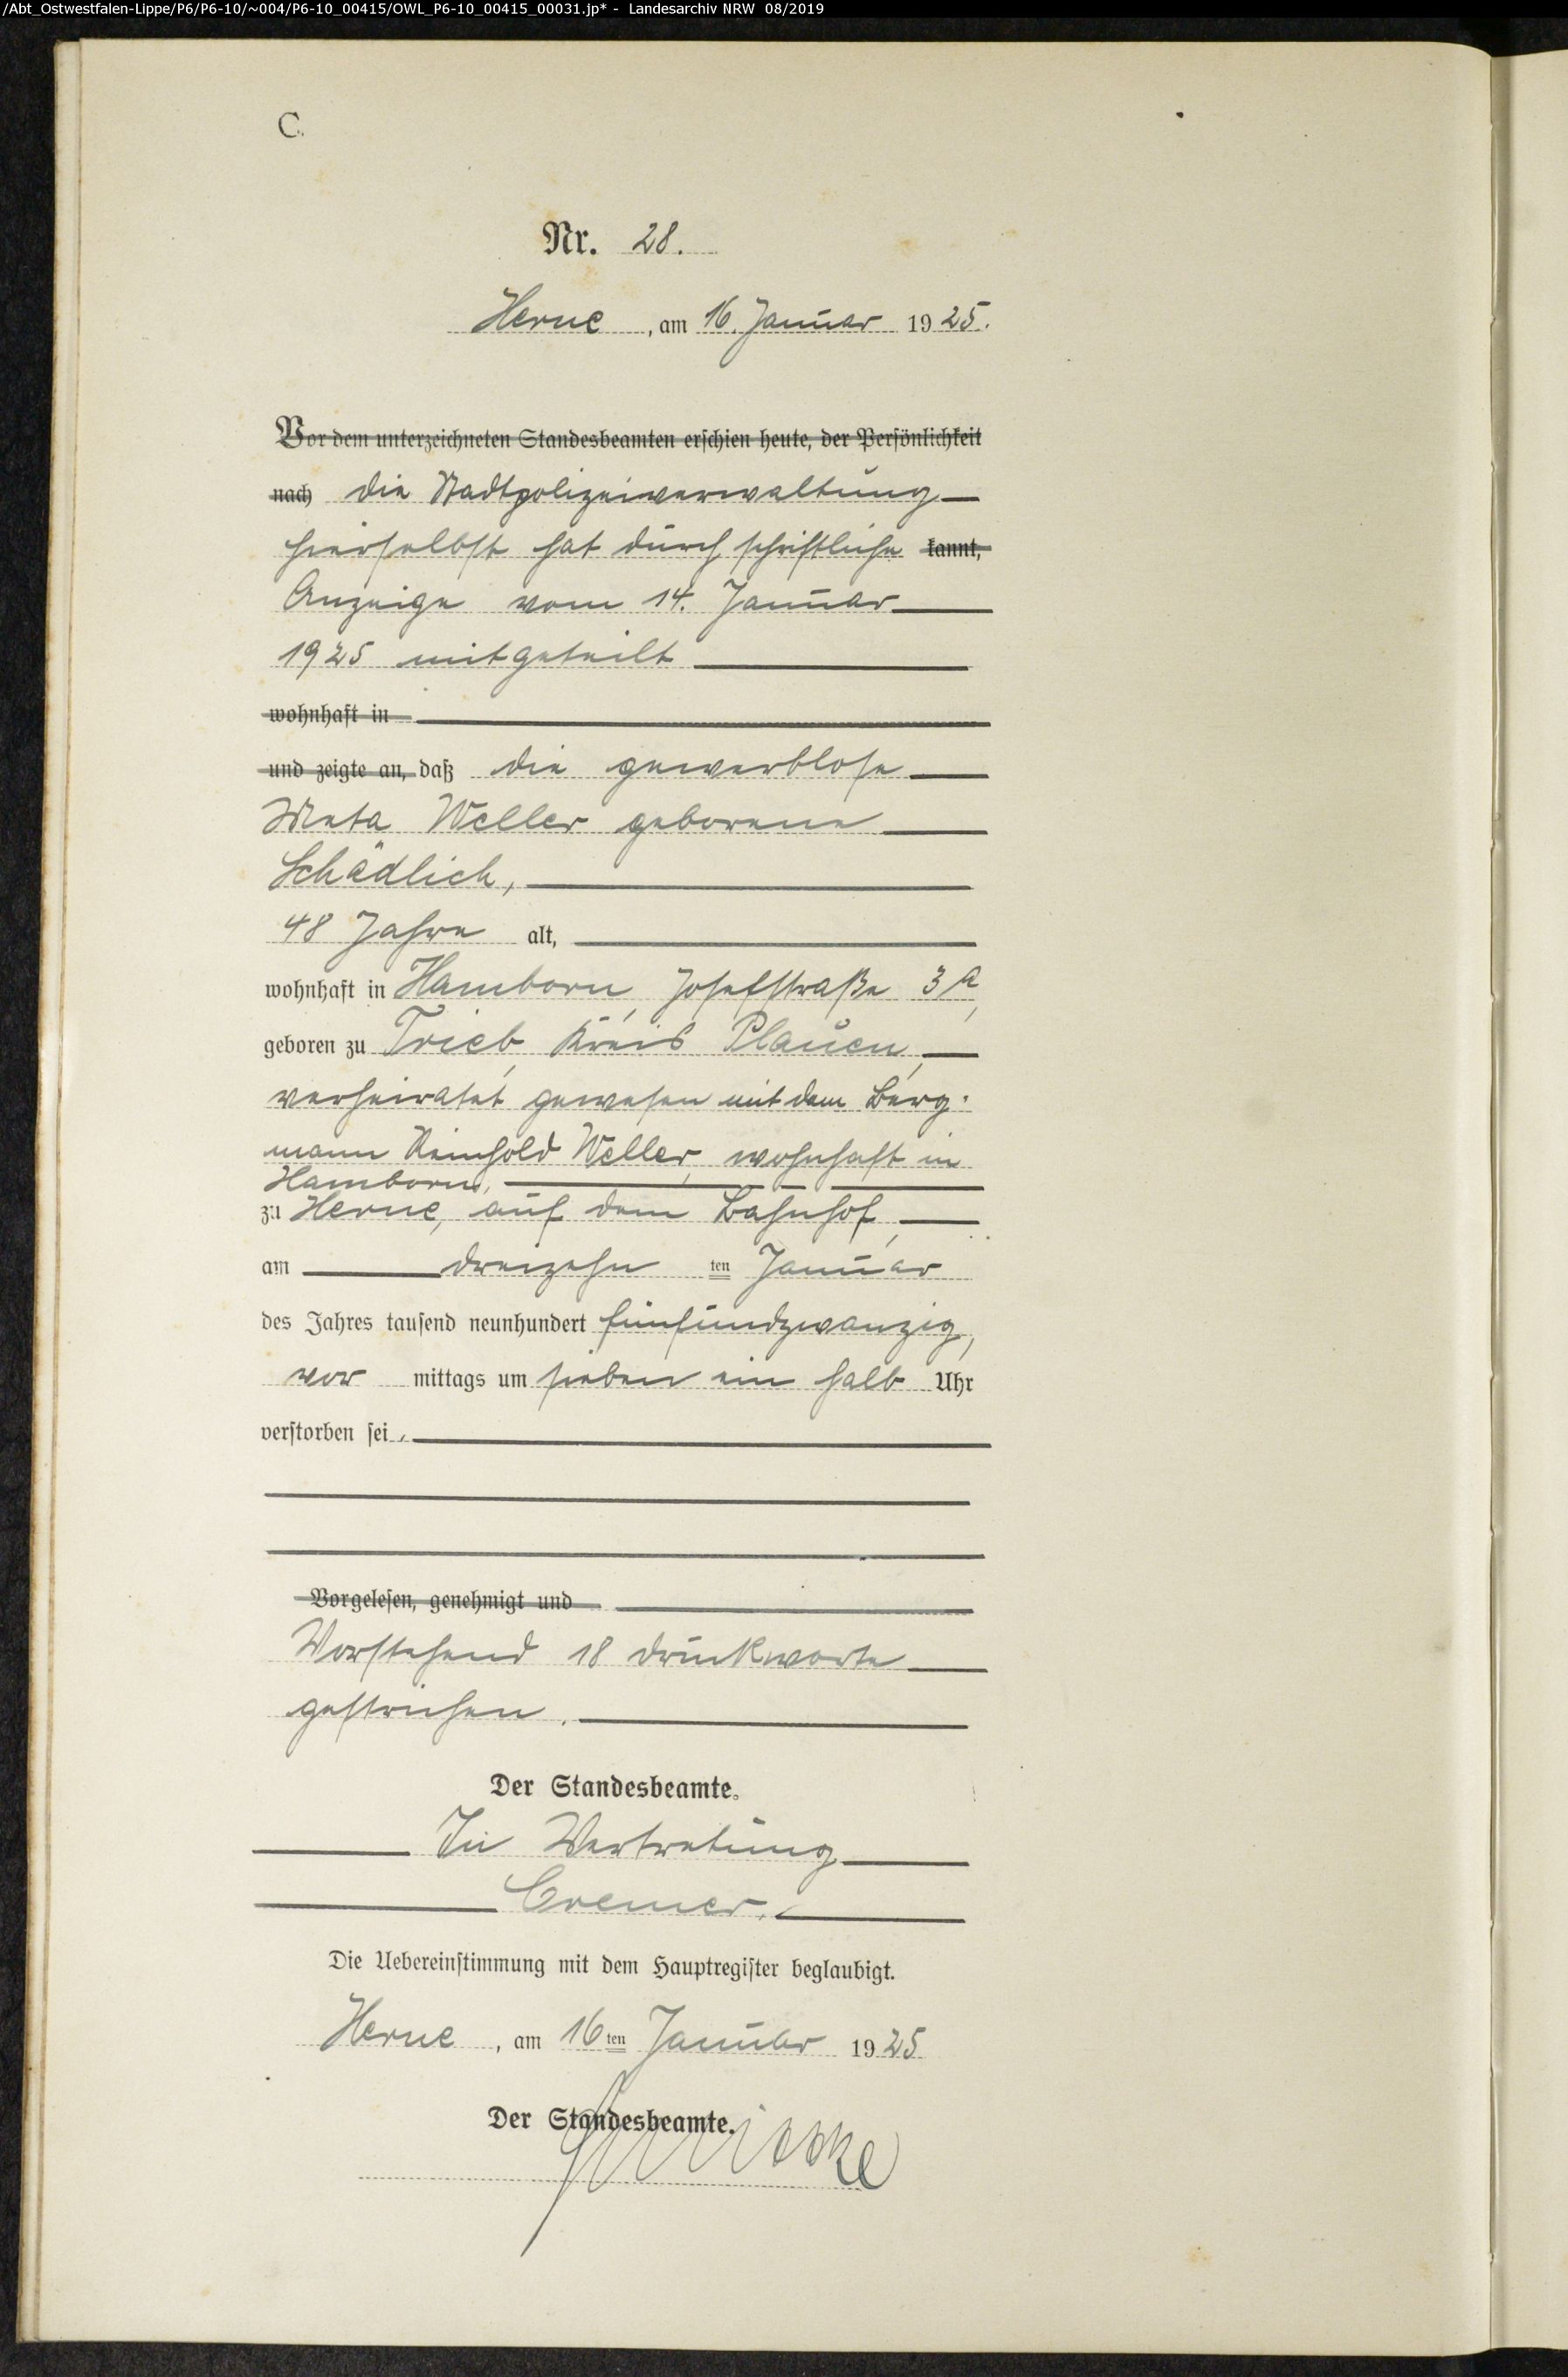 /Abt_Ostwestfalen-Lippe/P6/P6-10/~004/P6-10_00415/OWL_P6-10_00415_00031.jp* - Landesarchiv NRW 08/2019
C.
Nr. 28.
Herne, am 16. Januar 1925.
Vor dem unterzeichneten Standesbeamten erschien heute, der Persönlichkeit
nach die Stadtpolizeiverwaltung
hierselbst hat durch schriftliche kannt,
Anzeige vom 14. Januar
1925 mitgeteilt
wohnhaft in
und zeigte an, daß die gewerblose
Meta Weller geborene
Schädlich,
48 Jahre alt,
wohnhaft in Hamborn, Josefstraße 3a,
geboren zu Trieb, Kreis Plauen,
verheiratet gewesen mit dem Berg-
mann Reinhold Weller, wohnhaft in
Hamborn,
zu Herne, auf dem Bahnhof,
am dreizehn ten Januar
des Jahres tausend neunhundert fünfundzwanzig,
vor mittags um sieben ein halb Uhr
verstorben sei.
Vorgelesen, genehmigt und
Vorstehend 18 Druckworte
gestrichen.
Der Standesbeamte.
In Vertretung
Cremer.
Die Uebereinstimmung mit dem Hauptregister beglaubigt.
Herne, am 16ten Januar 1925
Der Standesbeamte.